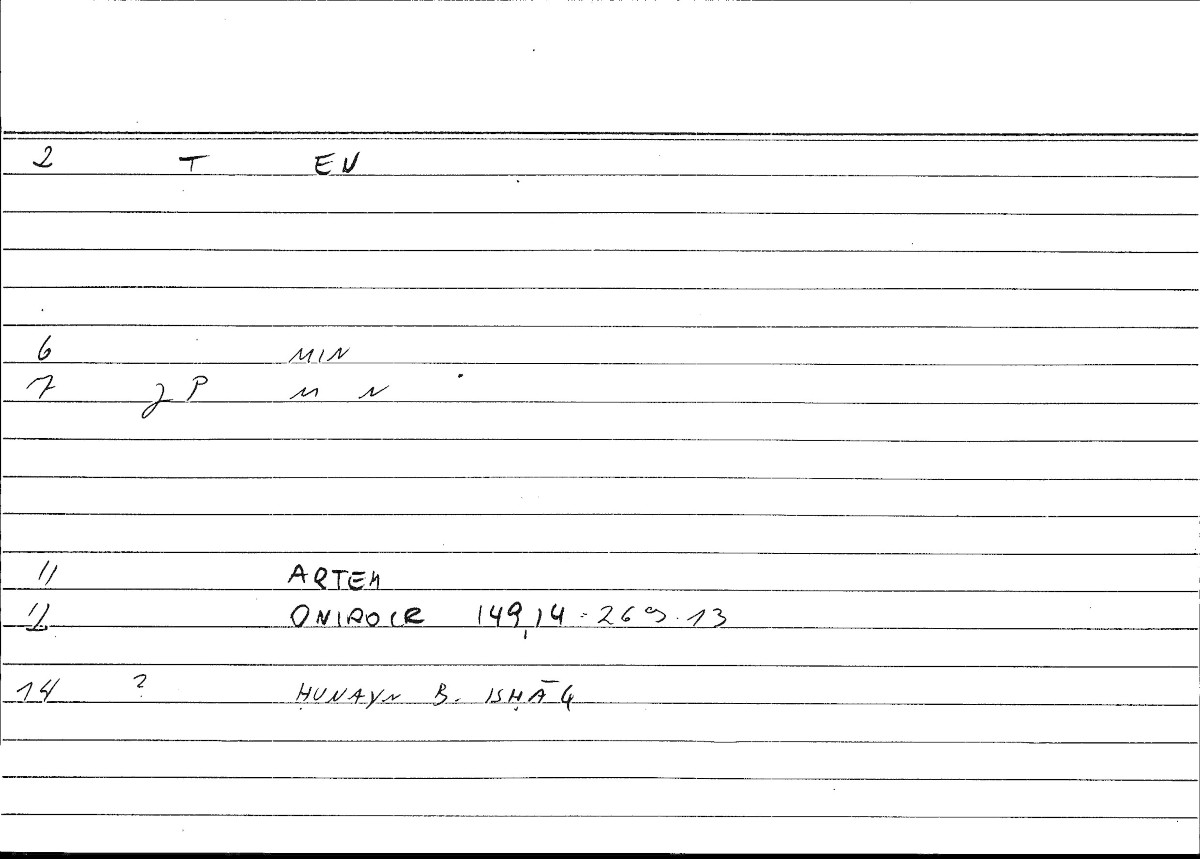 2 T EN
6 MIN
7 P M N
11 ARTEM
12 ONIROCR 149,14 = 269.13
14 ? ḤUNAYN B. ISḤĀQ